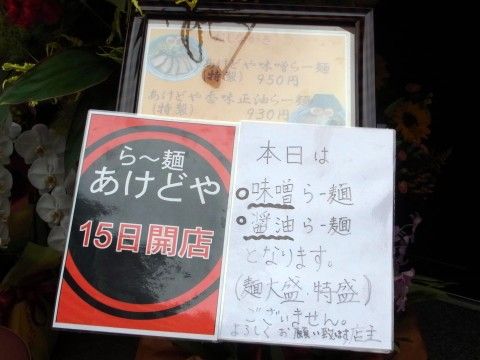 おしながき
あけどや味噌らー麺
(特製) 950円
あけどや香味正油らー麺
(特製) 930円
ら〜麺
あけどや
15日開店
本日は
味噌らー麺
醤油らー麺
となります。
(麺大盛・特盛)
ございません。
よろしくお願い致します 店主